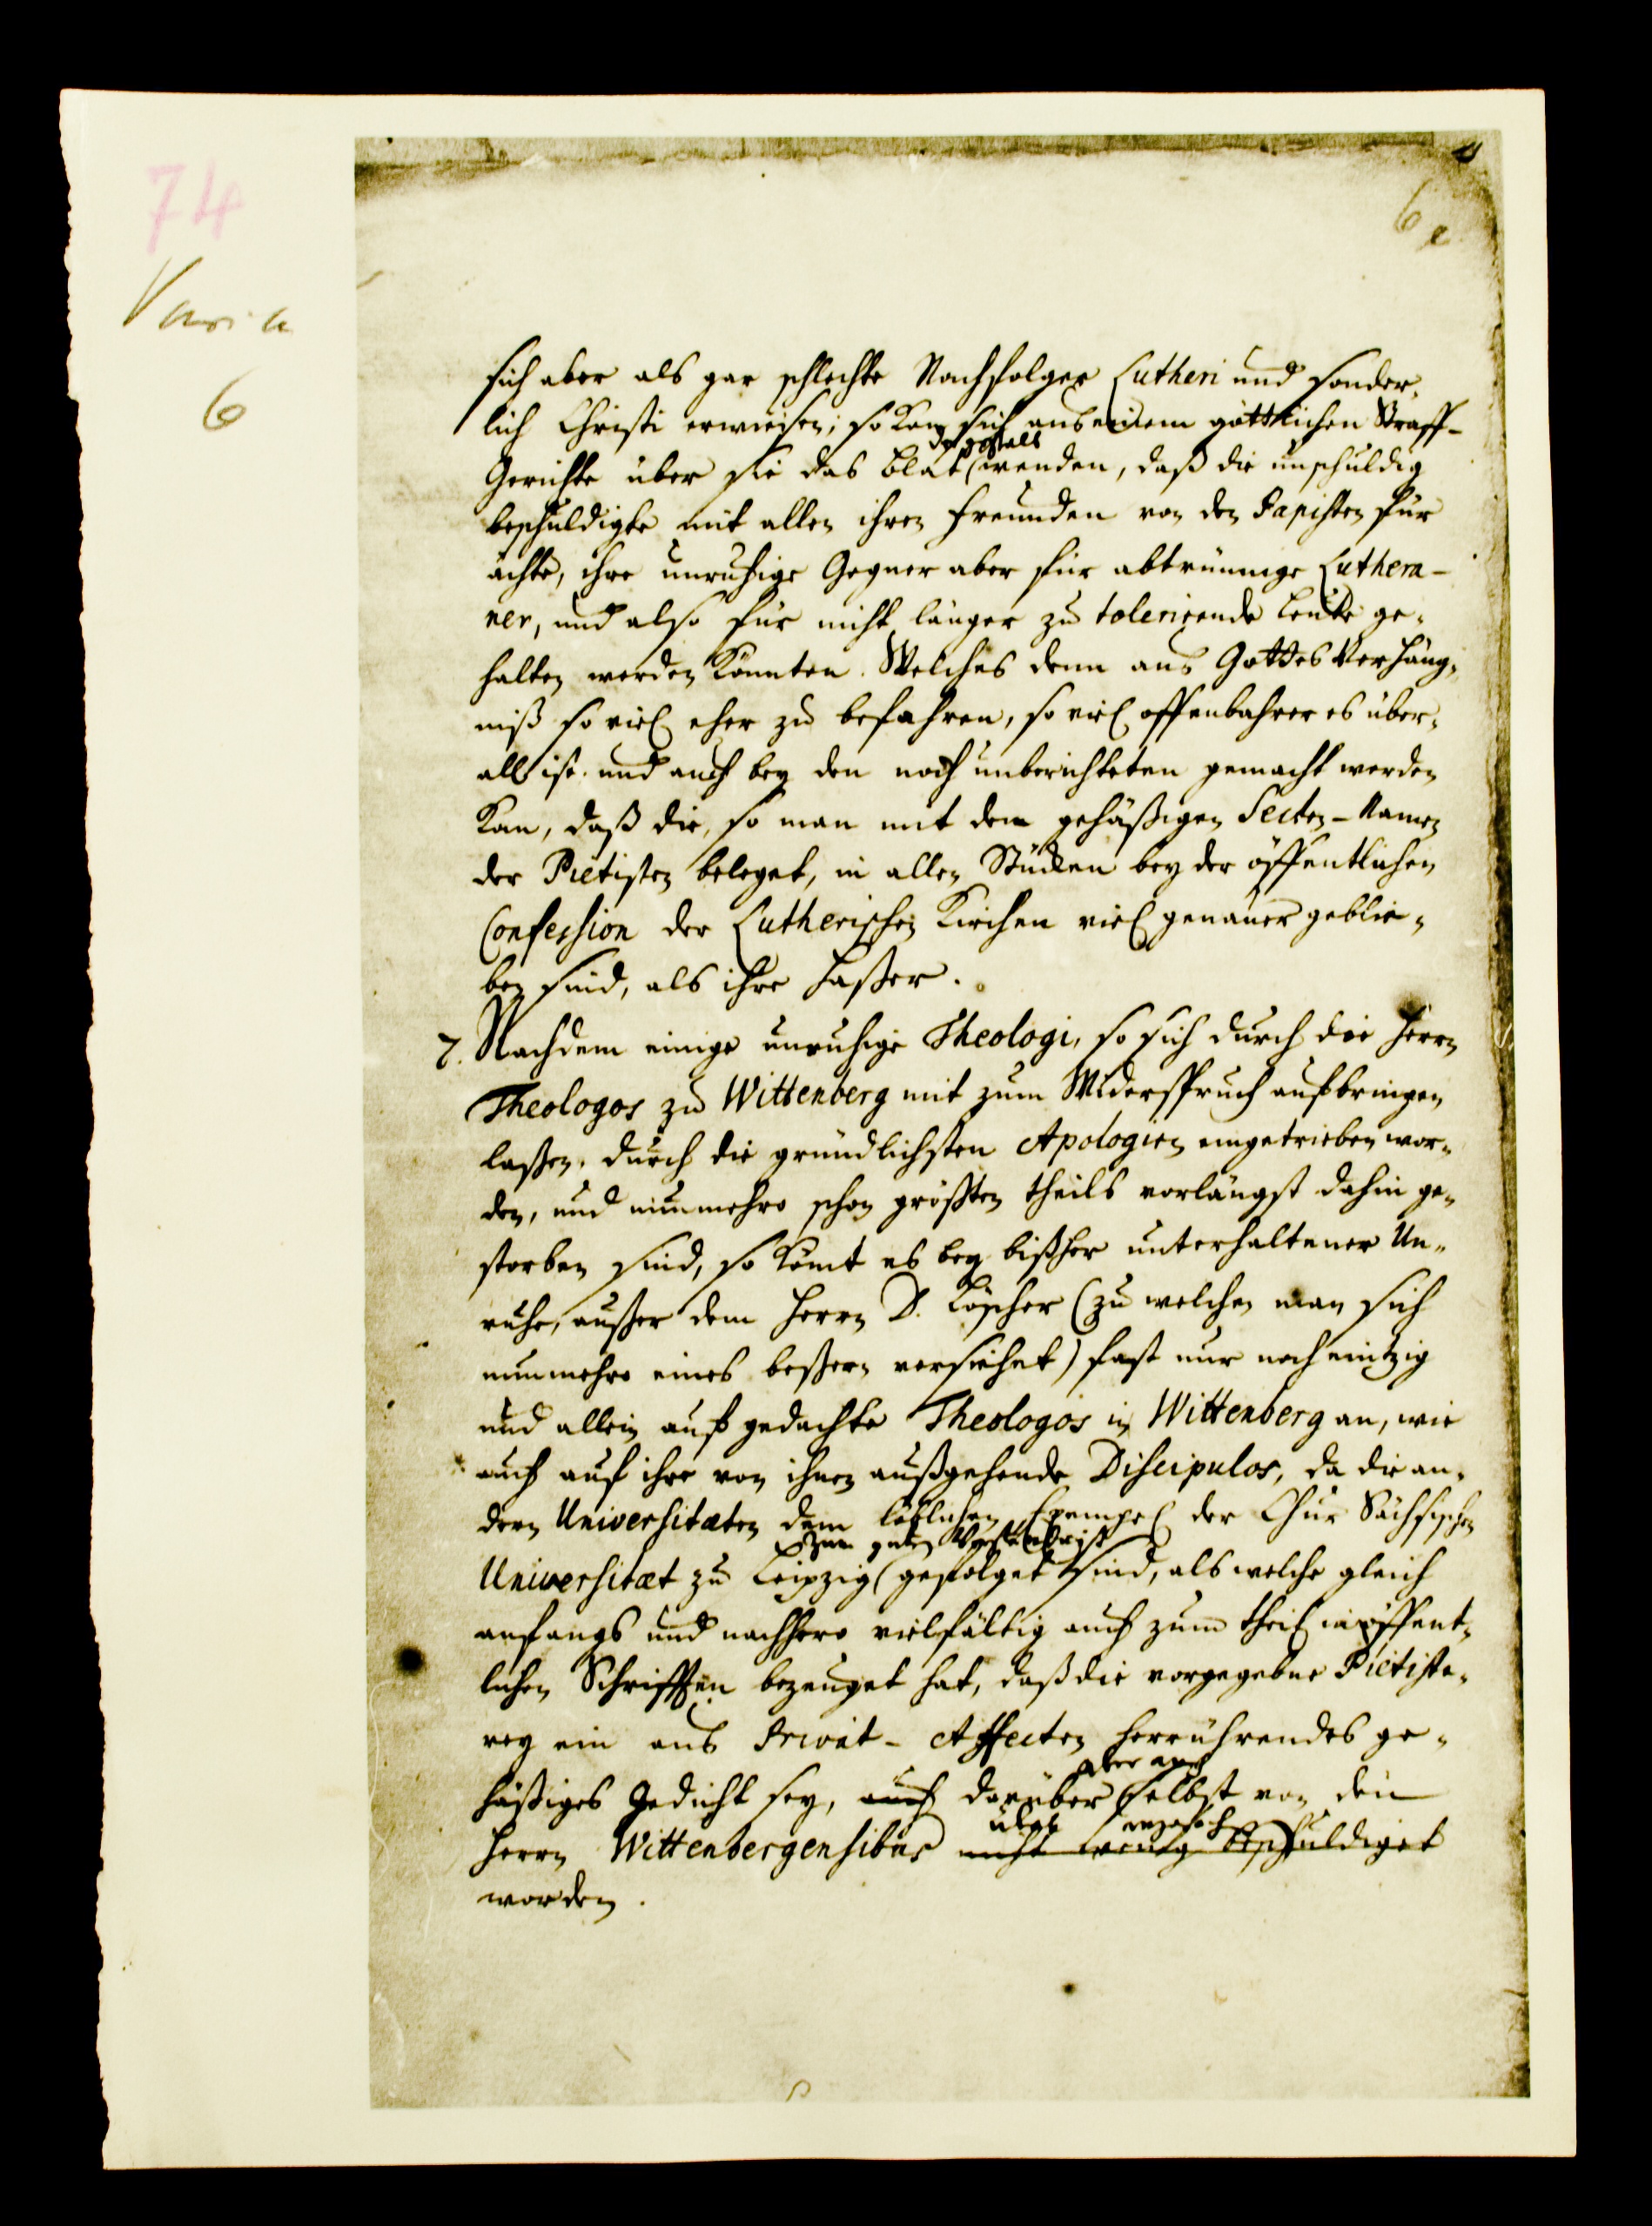 74
Varia
6
6e
sich aber als gar schlechte Nachfolger Lutheri und sonder-
lich Christi erweisen; so kan sich aus einem göttlichen Straff-
dergestalt
Gerichte über sie das Blat wenden, daß die unschuldig
beschuldigte mit allen ihren Freunden von den Papisten für
ächte, ihre unruhige Gegner aber für abtrünnige Luthera-
ner, und also für nicht länger zu tolerirende Leute ge-
halten werden könnten. Welches denn aus Gottes Verhäng-
niß so viel eher zu befahren, so viel offenbahrer es über-
all ist und auch bey den noch unberichteten gemacht werden
kan, daß die, so man mit dem gehäßigen Secten-Namen
der Pietisten beleget, in allen Stücken bey der öffentlichen
Confession der Lutherischen Kirchen viel genauer geblie-
ben sind, als ihre Haßer.
7. Nachdem einige unruhige Theologi, so sich durch die Herrn
Theologos zu Wittenberg mit zum Widerspruch aufbringen
laßen, durch die gründlichsten Apologien eingetrieben wor-
den, und nunmehro schon größten theils vorlängst dahin ge-
storben sind, so kömt es bey bißher unterhaltener Un-
ruhe, außer dem Herrn D. Löscher (zu welchen man sich
nunmehro eines beßern versiehet) fast nur noch eintzig
und allein auf gedachte Theologos in Wittenberg an, wie
auch auf ihre von ihnen außgehende Discipulos, da die an-
dern Universitæten dem löblichen Exempel der Chur Sächsischen
zum guten
Universitæt zu Leipzig gefolget sind, als welche gleich
anfangs und nachhero vielfältig auch zum theil in öffent-
lichen Schrifften bezeuget hat, daß die vorgegebne Pietiste-
rey ein aus Privat-Affecten herrührendes ge-
aber auch
häßiges Gedicht sey, auch darüber selbst von den
übel
Herrn Wittenbergensibus nicht wenig beschuldiget
worden.